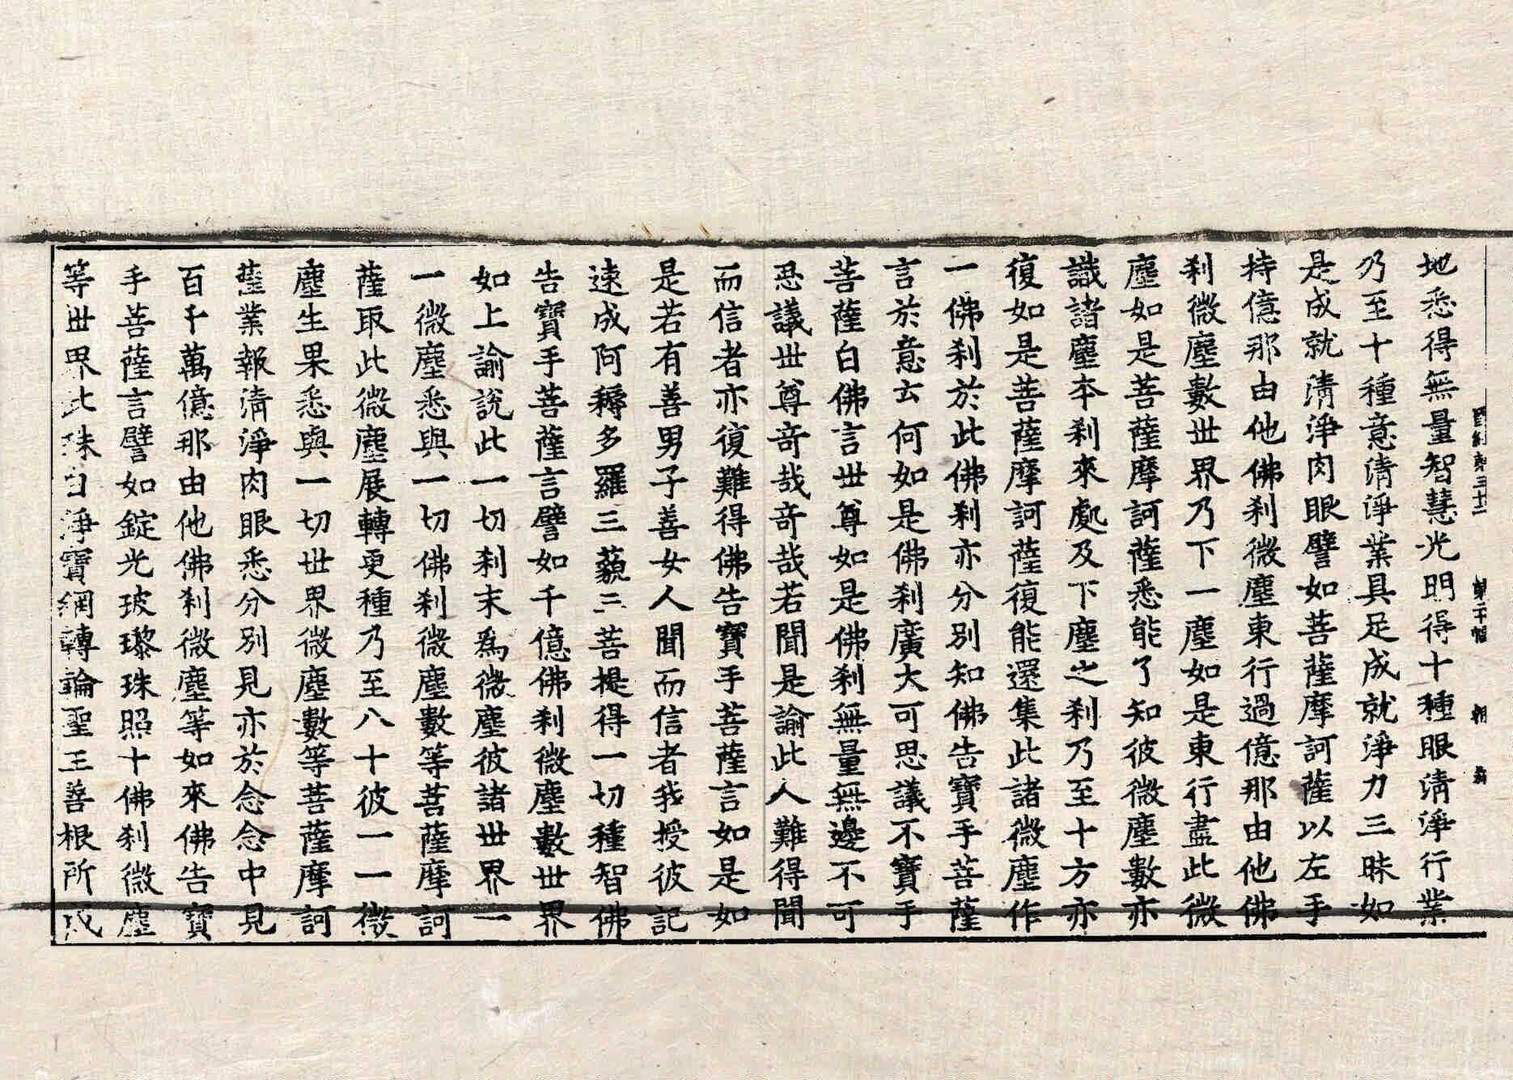 晉經第三十二 第二十幅 朝
地悉得無量智慧光門得十種眼清淨行業
乃至十種意清淨業具足成就淨力三昧如
是成就清淨肉眼譬如菩薩摩訶薩以左手
持億那由他佛刹微塵東行過億那由他佛
刹微塵數世界乃下一塵如是東行盡此微
塵如是菩薩摩訶薩悉能了知彼微塵數亦
識諸塵本刹來處及下塵之刹乃至十方亦
復如是菩薩摩訶薩復能還集此諸微塵作
一佛刹於此佛刹亦分別知佛告寶手菩薩
言於意云何如是佛刹廣大可思議不寶手
菩薩白佛言世尊如是佛刹無量無邊不可
思議世尊奇哉奇哉若聞是諭此人難得聞
而信者亦復難得佛告寶手菩薩言如是如
是若有善男子善女人聞而信者我授彼記
速成阿耨多羅三藐三菩提得一切種智佛
告寶手菩薩言譬如千億佛刹微塵數世界
如上諭說此一切刹末爲微塵彼諸世界一
一微塵悉與一切佛刹微塵數等菩薩摩訶
薩取此微塵展轉更種乃至八十彼一一微
塵生果悉與一切世界微塵數等菩薩摩訶
薩業報清淨肉眼悉分別見亦於念念中見
百千萬億那由他佛刹微塵等如來佛告寶
手菩薩言譬如錠光玻瓈珠照十佛刹微塵
等世界此珠白淨寶網轉論聖王善根所成